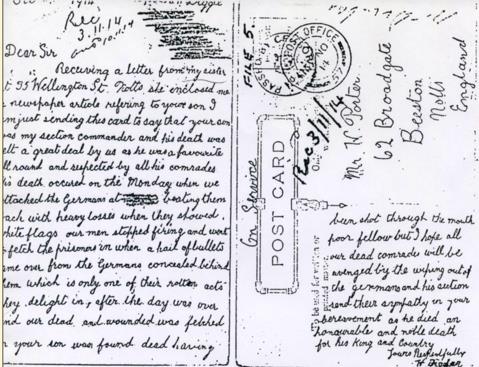 Rec
3.11.14
Dear Sir
Receiving a letter from my sister
at 35 Wellington St. Notts she inclosed me
newspaper article refering to your son I
am just sending this card to say that your son
was my section commander and his death was
felt a great deal by us as he was a favourite
all round and respected by all his comrades
his death occured on the Monday when we
attacked the Germans at beating them
back with heavy losses when they showed
white flags our men stopped firing and went
to fetch the prisoners in when a hail of bullets
came over from the Germans concealed behind
them which is only one of their rotten acts
they delight in, after the day was over
and our dead and wounded was fetched
in your son was found dead having
FILE 5.
PASSED BY CENSOR
POST OFFICE
NO
14
On Service
POST CARD
Rec 3/11/14
Mr. W. Porter
62 Broadgate
Beeston
Notts
England
been shot through the mouth
poor fellow but I hope all
our dead comrades will be
avenged by the wiping out of
the germans and his section
send their sympathy in your
bereavement as he died an
honourable and noble death
for his King and Country
Yours Respectfully